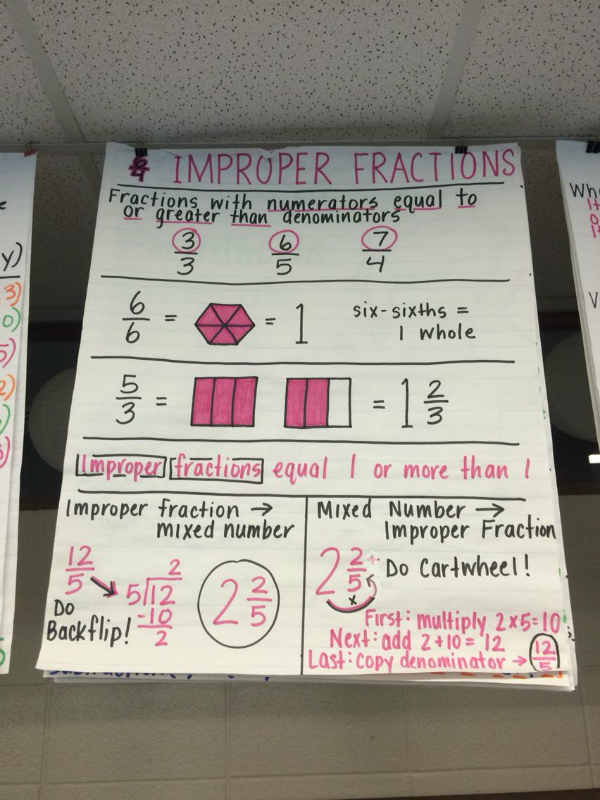 IMPROPER FRACTIONS
Fractions with numerators equal to
or greater than denominators
3/3 6/5 7/4
6/6 = = 1 six-sixths =
1 whole
5/3 = = 1 2/3
Improper fractions equal 1 or more than 1
Improper fraction →
mixed number
12/5
2
5)12
-10
2
2 2/5
Do
Backflip!
Mixed Number →
Improper Fraction
2 2/5 + x
Do Cartwheel!
First: multiply 2x5=10
Next: add 2+10= 12
Last: copy denominator → 12/5